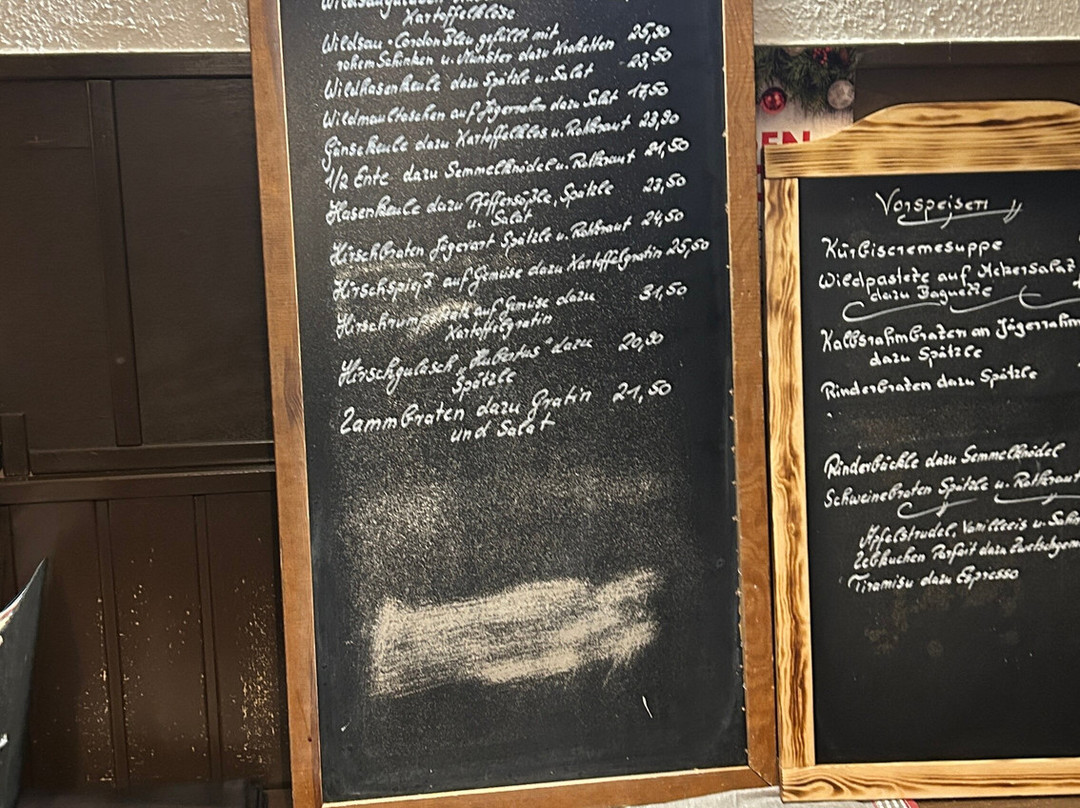 Kartoffelklöse
Wildsau-Cordon Bleu gefüllt mit 25,90
rohem Schinken u. Münster dazu Kroketten
Wildhasenkeule dazu Spätzle u. Salat 23,50
Wildmaultaschen auf Jägerrahm dazu Salat 17,50
Gänsekeule dazu Kartoffelklos u. Rotkraut 23,90
1/2 Ente dazu Semmelknödel u. Rotkraut 21,50
Hasenkeule dazu Pfeffersößle, Spätzle 23,50
u. Salat
Hirschbraten Jägerart Spätzle u. Rotkraut 24,50
Hirschspieß auf Gemüse dazu Kartoffelgratin 25,50
auf Gemüse dazu 31,50
Kartoffelgratin
Hirschgulasch "Hubertus" dazu 20,90
Spätzle
Lammbraten dazu Gratin 21,50
und Salat
EN
Vorspeisen
Kürbiscremesuppe
Wildpastete auf Ackersalat
dazu Baguette
Kalbsrahmbraten an Jägerrahm
dazu Spätzle
Rinderbraten dazu Spätzle
Rinderbäckle dazu Semmelknödel
Schweinebraten Spätzle u. Rotkraut
Apfelstrudel, Vanilleeis u. Sahn
Lebkuchen Parfait dazu Zwetschgen
Tiramisu dazu Espresso